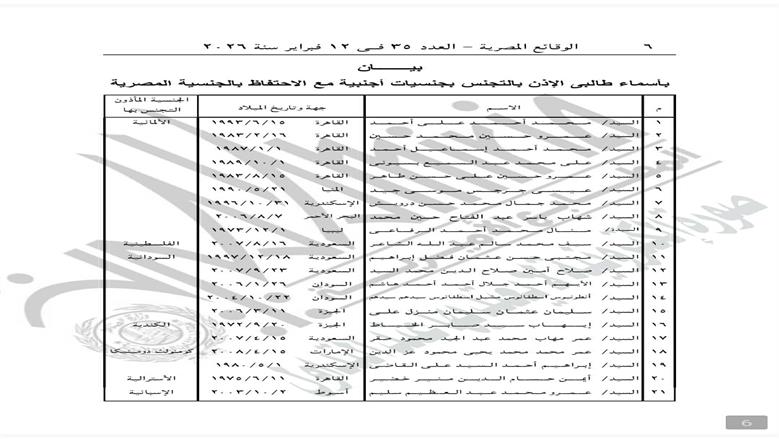 ٦ الوقائع المصرية – العدد ٣٥ فى ١٢ فبراير سنة ٢٠٢٦
بيـــان
بأسماء طالبى الإذن بالتجنس بجنسيات أجنبية مع الاحتفاظ بالجنسية المصرية
م الاسم جهة وتاريخ الميلاد الجنسية المأذون التجنس بها
١ السيد/ محمد أحمد على أحمد القاهرة ١٩٩٣/٦/١٥ الألمانية
٢ السيد/ عمرو حسين محمد حسين القاهرة ١٩٨٣/٢/١٦
٣ السيد/ محمد أحمد إسماعيل أحمد القاهرة ١٩٨٧/١/١
٤ السيد/ على محمد عبد بيونى القاهرة ١٩٨٩/١٠/١
٥ السيد/ عمرو حسين على حسن طاهر القاهرة ١٩٨٣/٨/١٥
٦ السيد/ جرجس موسى المنيا ١٩٩٠/٥/٢١
٧ السيد/ محمد جمال محمد حسن درويش الإسكندرية ١٩٩٦/١٠/٣١
٨ السيد/ شهاب عبد الفتاح حسين محمد البحر الأحمر ٢٠٠٦/٨/٧
٩ السيدة/ منال محمد أحمد الرفاعى ليبيا ١٩٧٣/١٢/١
١٠ السيد/ سيف محمد سالم عبد الله الشاعر السعودية ٢٠٠٧/٨/١٦ الفلسطينية
١١ السيد/ حسن عثمان فضل إبراهيم السعودية ١٩٩٧/١٢/١٨ السودانية
١٢ السيد/ صلاح أمين صلاح الدين محمد السعودية ٢٠٠٧/٩/٢٣
١٣ السيد/ أحمد أحمد هاشم السودان ٢٠٠٦/١/٢٦
١٤ السيد/ السودان ٢٠٠٤/١٠/٢٢
١٥ السيد/ سليمان عثمان سليمان على الجيزة ٢٠٠٦/٣/١١
١٦ السيد/ إيهاب الخياط الجيزة ١٩٧٢/٩/٢٠ الكندية
١٧ السيد/ عمر مهاب محمد عبد المجيد محمود صقر السعودية ٢٠٠٧/٤/١٥
١٨ السيد/ عمر محمد محمد يحيى محمود عز الدين الإمارات ٢٠٠٨/٤/١٥ كومنولث دومنيكا
١٩ السيد/ إبراهيم أحمد السيد على القاضى الإسكندرية ١٩٨٠/٥/١
٢٠ السيد/ أيمن حسام الدين منير خضير القاهرة ١٩٧٥/٦/١١ الأسترالية
٢١ السيد/ عمرو محمد عبد العظيم سليم أسيوط ٢٠٠٣/١٠/٢ الإسبانية
6